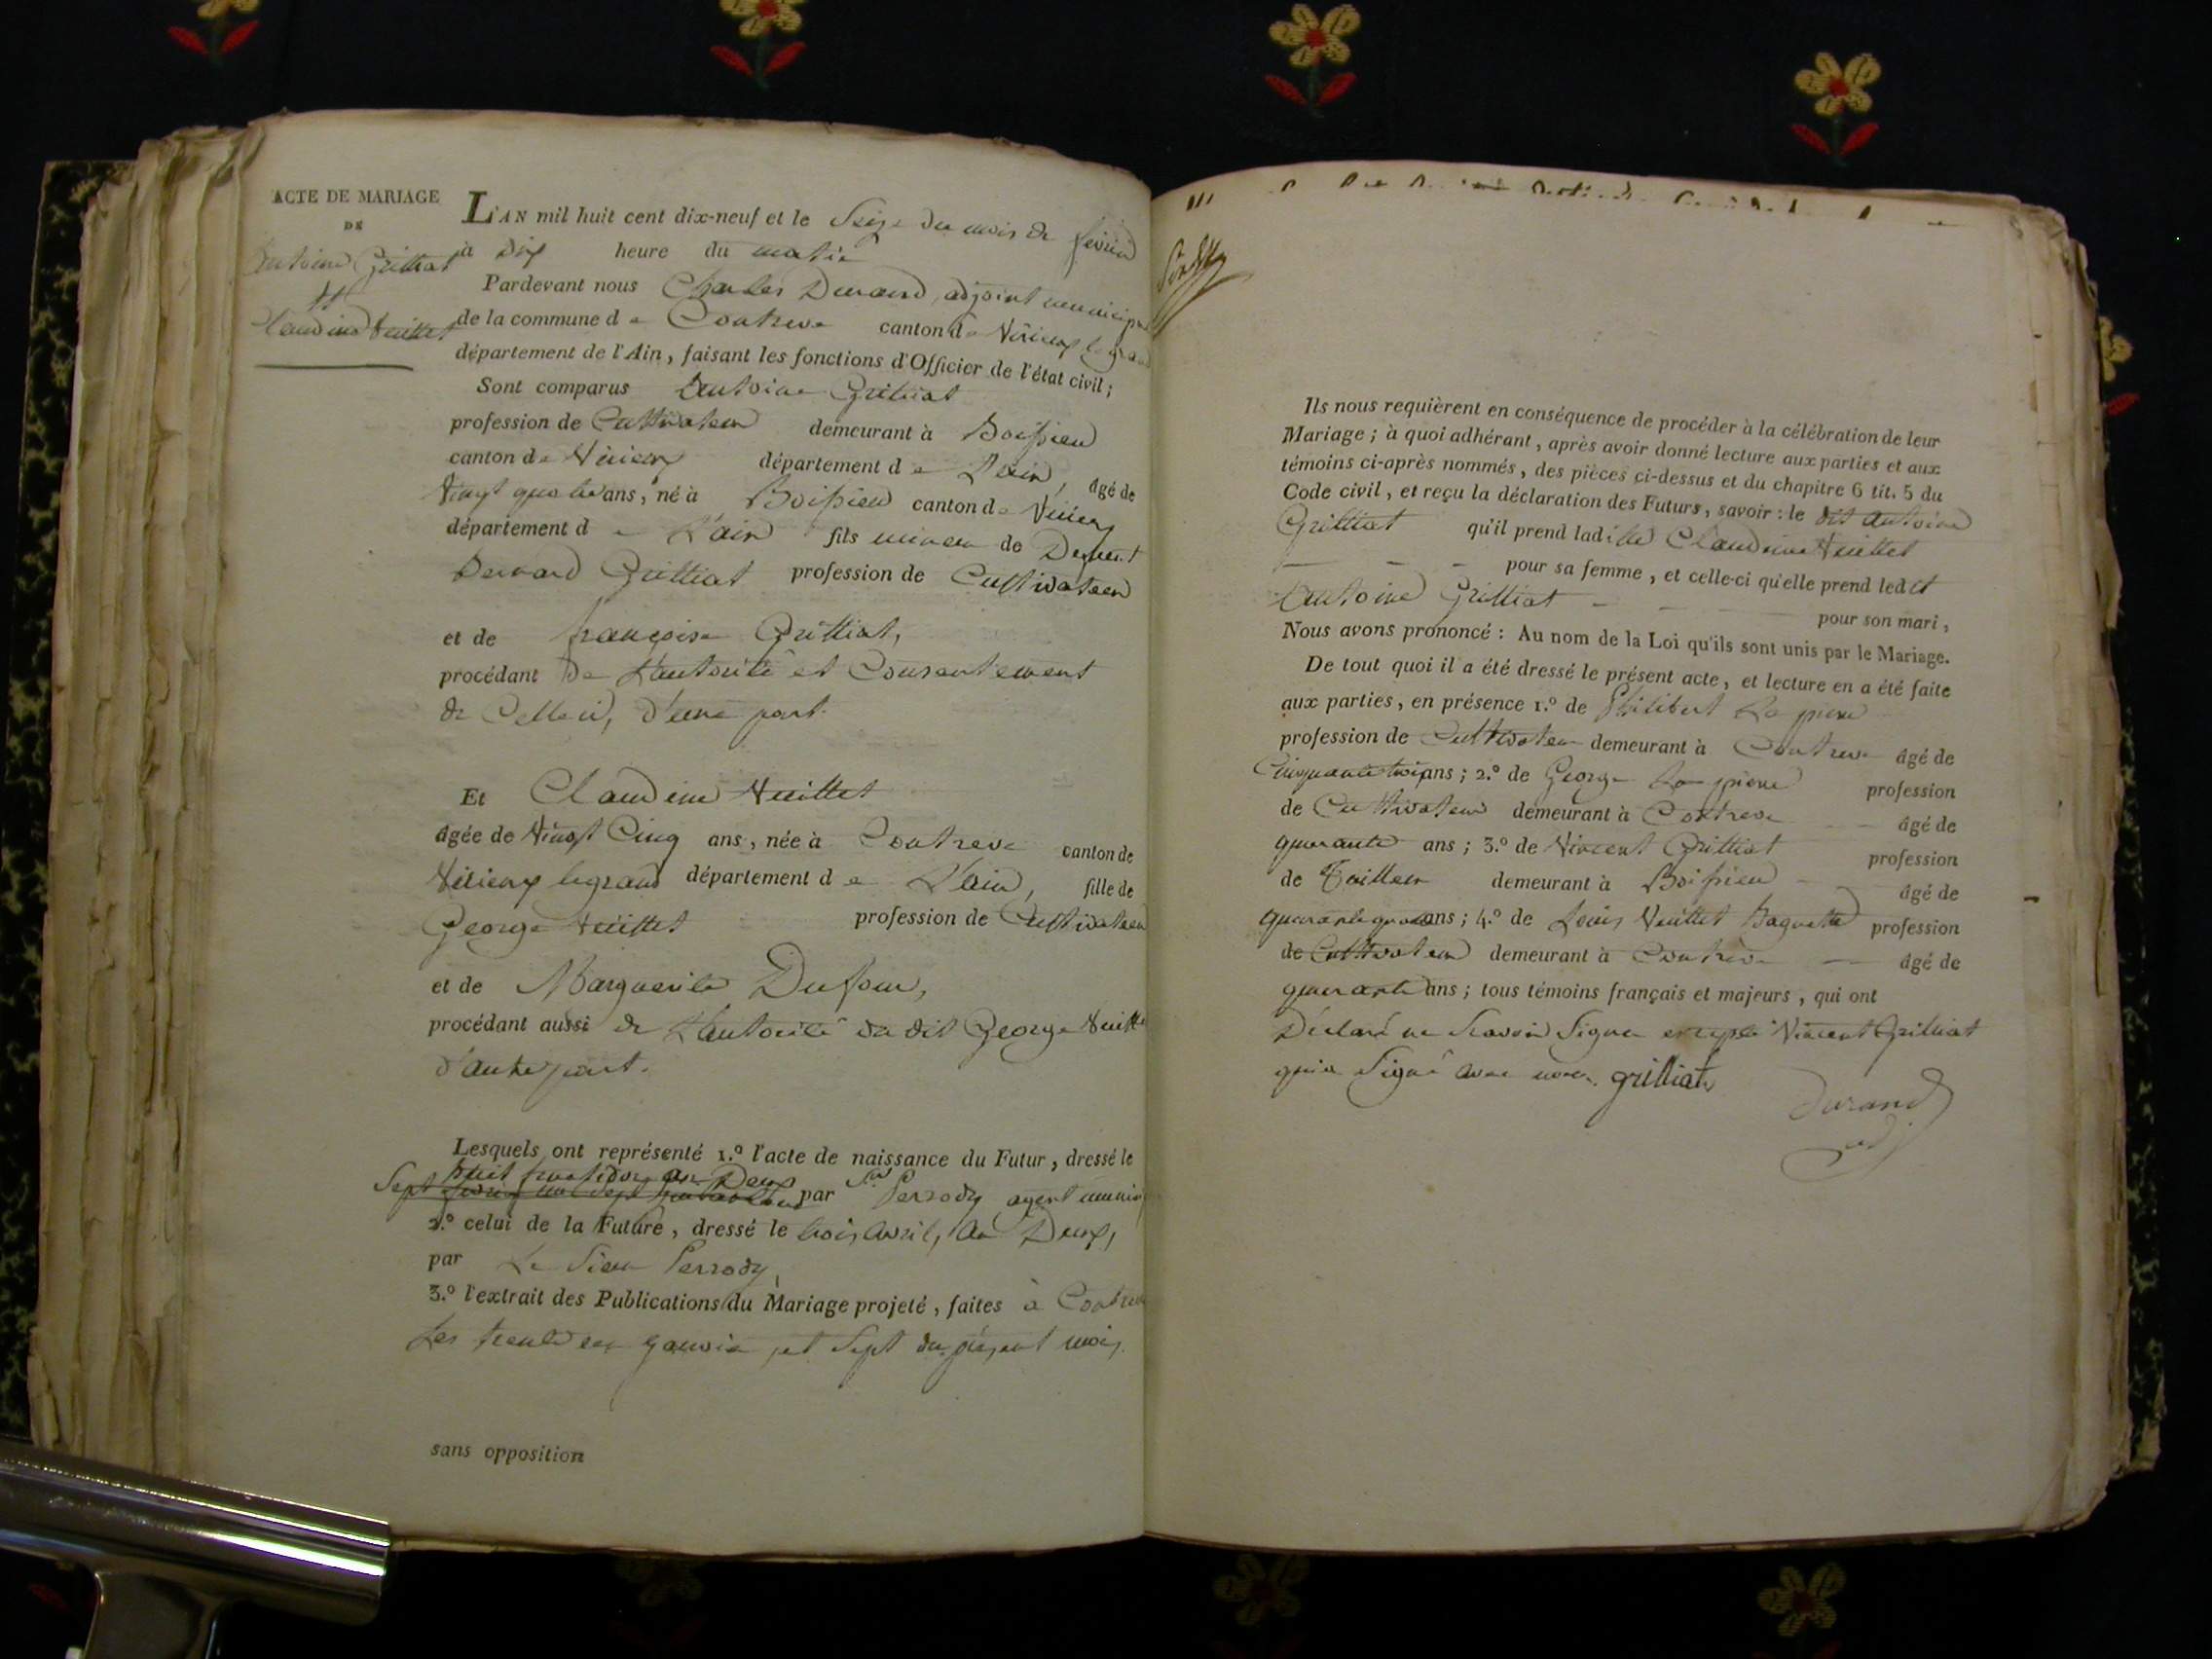 ACTE DE MARIAGE
DE
Antoine Grilliat
et
Claudine Vuillet
L'AN mil huit cent dix-neuf et le Seize du mois de fevrier
à Dix heure du matin
Pardevant nous Charles Durand, adjoint municipal
de la commune de Contrevo canton de Virieux le grand
département de l'Ain, faisant les fonctions d'Officier de l'état civil;
Sont comparus Antoine Grilliat
profession de Cultivateur demeurant à Boissieu
canton de Virieux département de L'ain, âgé de
Vingt quatre ans, né à Boissieu canton de Virieux
département de L'ain fils mineur de Defunt
Bernard Grilliat profession de Cultivateur
et de françoise Grilliat,
procédant De L'autorité et Consentement
de Celle ci, d'une part.
Et Claudine Vuillet
âgée de Vingt Cinq ans, née à Contrevo canton de
Virieux legrand département de L'ain, fille de
George Vuillet profession de Cultivateur
et de Marguerite Dufour,
procédant aussi de L'autorité du dit George Vuillet
d'autre part.
Lesquels ont représenté 1.º l'acte de naissance du Futur, dressé le
huit fructidor an Deux
Sept par Sr Perrody agent munic
2.º celui de la Future, dressé le trois avril, an Deux,
par Le Sieur Perrody,
3.º l'extrait des Publications du Mariage projeté, faites à Contrevo
Les trente un janvier, et Sept du présent mois,
sans opposition
Ils nous requièrent en conséquence de procéder à la célébration de leur
Mariage; à quoi adhérant, après avoir donné lecture aux parties et aux
témoins ci-après nommés, des pièces ci-dessus et du chapitre 6 tit. 5 du
Code civil, et reçu la déclaration des Futurs, savoir: le dit antoine
Grilliat qu'il prend ladite Claudine Vuillet
pour sa femme, et celle-ci qu'elle prend ledit
Antoine Grilliat pour son mari,
Nous avons prononcé: Au nom de la Loi qu'ils sont unis par le Mariage.
De tout quoi il a été dressé le présent acte, et lecture en a été faite
aux parties, en présence 1.º de Philibert La pierre
profession de Cultivateur demeurant à Contrevo âgé de
Cinquante trois ans; 2.º de George La pierre profession
de Cultivateur demeurant à Contrevo âgé de
quarante ans; 3.º de Vincent Grilliat profession
de Tailleur demeurant à Boissieu âgé de
quarante quatre ans; 4.º de Louis Vuillet Baguette profession
de Cultivateur demeurant à Contrevo âgé de
quarante ans; tous témoins français et majeurs, qui ont
Déclaré ne Scavoir Signer excepté Vincent Grilliat
qui a Signé avec nous. grilliat
Durand
adj.